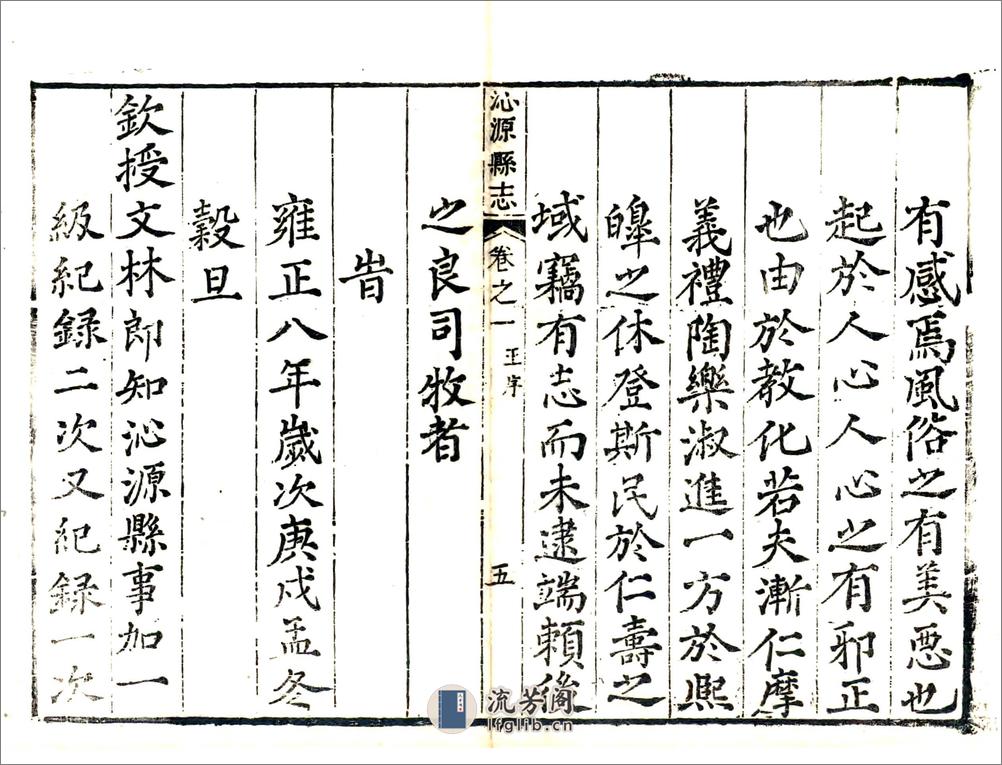 有感焉風俗之有美惡也
起於人心人心之有邪正
也由於教化若夫漸仁摩
義禮陶樂淑進一方於熙
皥之休登斯民於仁壽之
域竊有志而未逮端賴後
之良司牧者
沁源縣志 卷之一 王序 五
旹
雍正八年歲次庚戌孟冬
穀旦
欽授文林郎知沁源縣事加一
級紀録二次又紀録一次
流芳阁
lfglib.cn